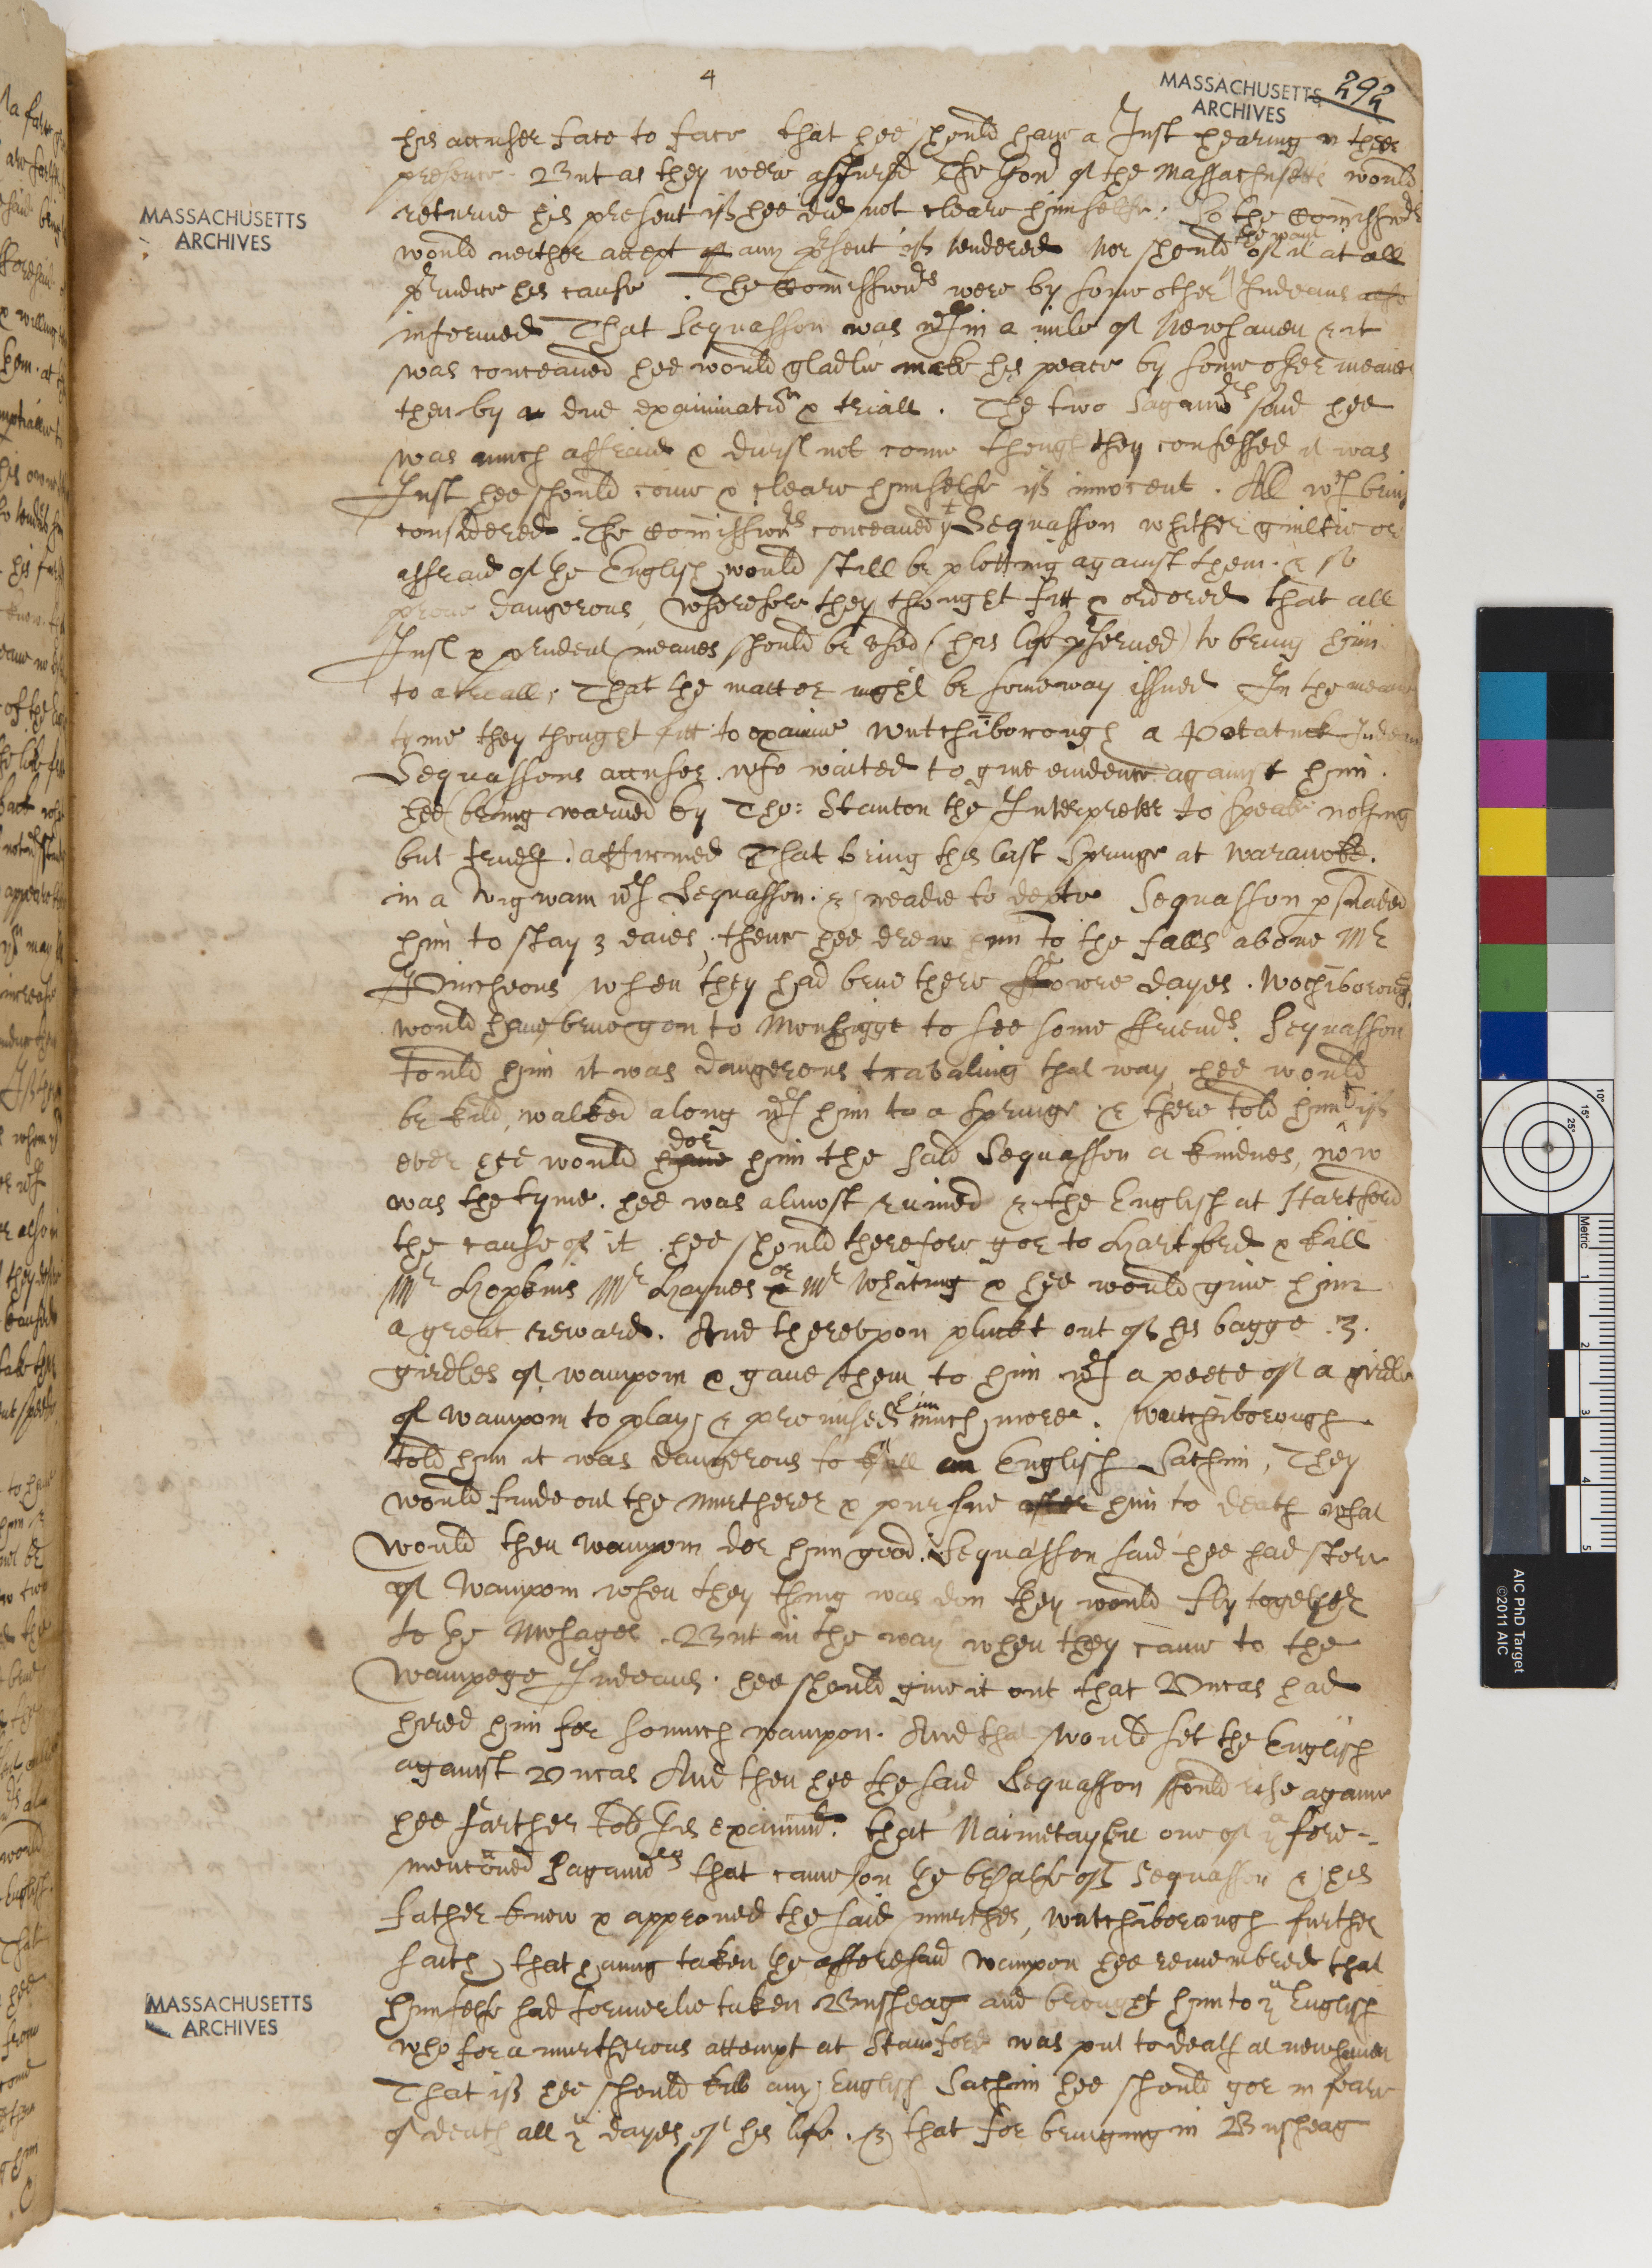 4
MASSACHUSETTS
ARCHIVES
292
his accuser face to face that hee should have a Just hearing in theer
presence. But as they were assured The Gou^r of the Massachusetts would
returne his present if hee did not cleare himselfe: So the Comission^rs
would neither accept of any p^rsent if tendered Nor should the want of it at all
p^riudice his cause. The Comission^rs were by some other Indeans also
MASSACHUSETTS
ARCHIVES
informed That Sequasson was w^th in a mile of Newhauen & it
was conceaued hee would gladlie make his peace by some other meanes
then by a due examinatiõn & triall. The two Sagam^rs said hee
was much affraid & durst not come though they confessed it was
Just hee should come & cleare himselfe if innocent. All w^ch being
considered. The Comission^rs conceaued y^t Sequasson whither guiltie or
affraid of the English would still be plotting against them. & so
proue dangerous, wherefore they thought fitt & ordered that all
Just & prudent meanes should be vsed (his life p^rserued) to bring him
to a treall, That the matter might be some way issued In the meane
tyme they thought fitt to examine Wutchiborough a Potatuck Indean
Sequassons accuser. who waited to giue euidence against him.
hee (being warned by Tho: Stanton the Interpreter to speake nothing
but trueth.) affirmed That being this last Springe at Waranoke.
in a Wigwam w^th Sequasson. & readie to dep^te Sequasson p^rswaded
him to stay 3 daies, thence hee drew him to the falls aboue M^r
Pincheons when they had bene there fowre dayes. Wochiborough
would haue bene gon to Monhigge to see some ffriends. Sequasson
tould him it was dangerous trabaling that way, hee would
be kild, walked along w^th him to a springe & there told him y^t if
ever hee would haue doe him the said Sequasson a kindnes, now
was the tyme. hee was almost ruined & the English at Hartford
the cause of it hee should therefore goe to Hartford & kill
M^r Hopkins M^r Haynes & or M^r Whiting & hee would giue him
a great reward. And therevpon pluckt out of his bagge .3.
girdles of wampom & gaue them to him w^th a peece of a girdle
of wampom to play, & promised him much more. Wutchiborough
told him it was dangerous to kill an English Sachim, They
would finde out the murtherer & pursue after him to death what
would then wampom doe him good. Sequasson said hee had store
of Wampom when they thing was don they would fly together
to the Mohages. But in the way when they came to the
Wampege Indeans. hee should giue it out that Vncas had
hired him for somuch wampon. And that would set the English
against Vncas And then hee the said Sequasson should rise againe
hee farther told his examin^rs. that Naimetayhu one of y^e fore-
mencõned Sagam^rs that came on the behalfe of Sequasson & his
father knew & approued the said murther, Wutchiborough further
saith, that hauing taken the afforesaid Wampon hee remembred that
MASSACHUSETTS
ARCHIVES
himselfe had formerlie taken Busheag and brought him to y^e English
who for a murtherous attempt at Stamford was put to death at newhauen
That if hee should kill any English Sachim hee should goe in feare
of death all y^e dayes of his life. & that for bringing in Busheag